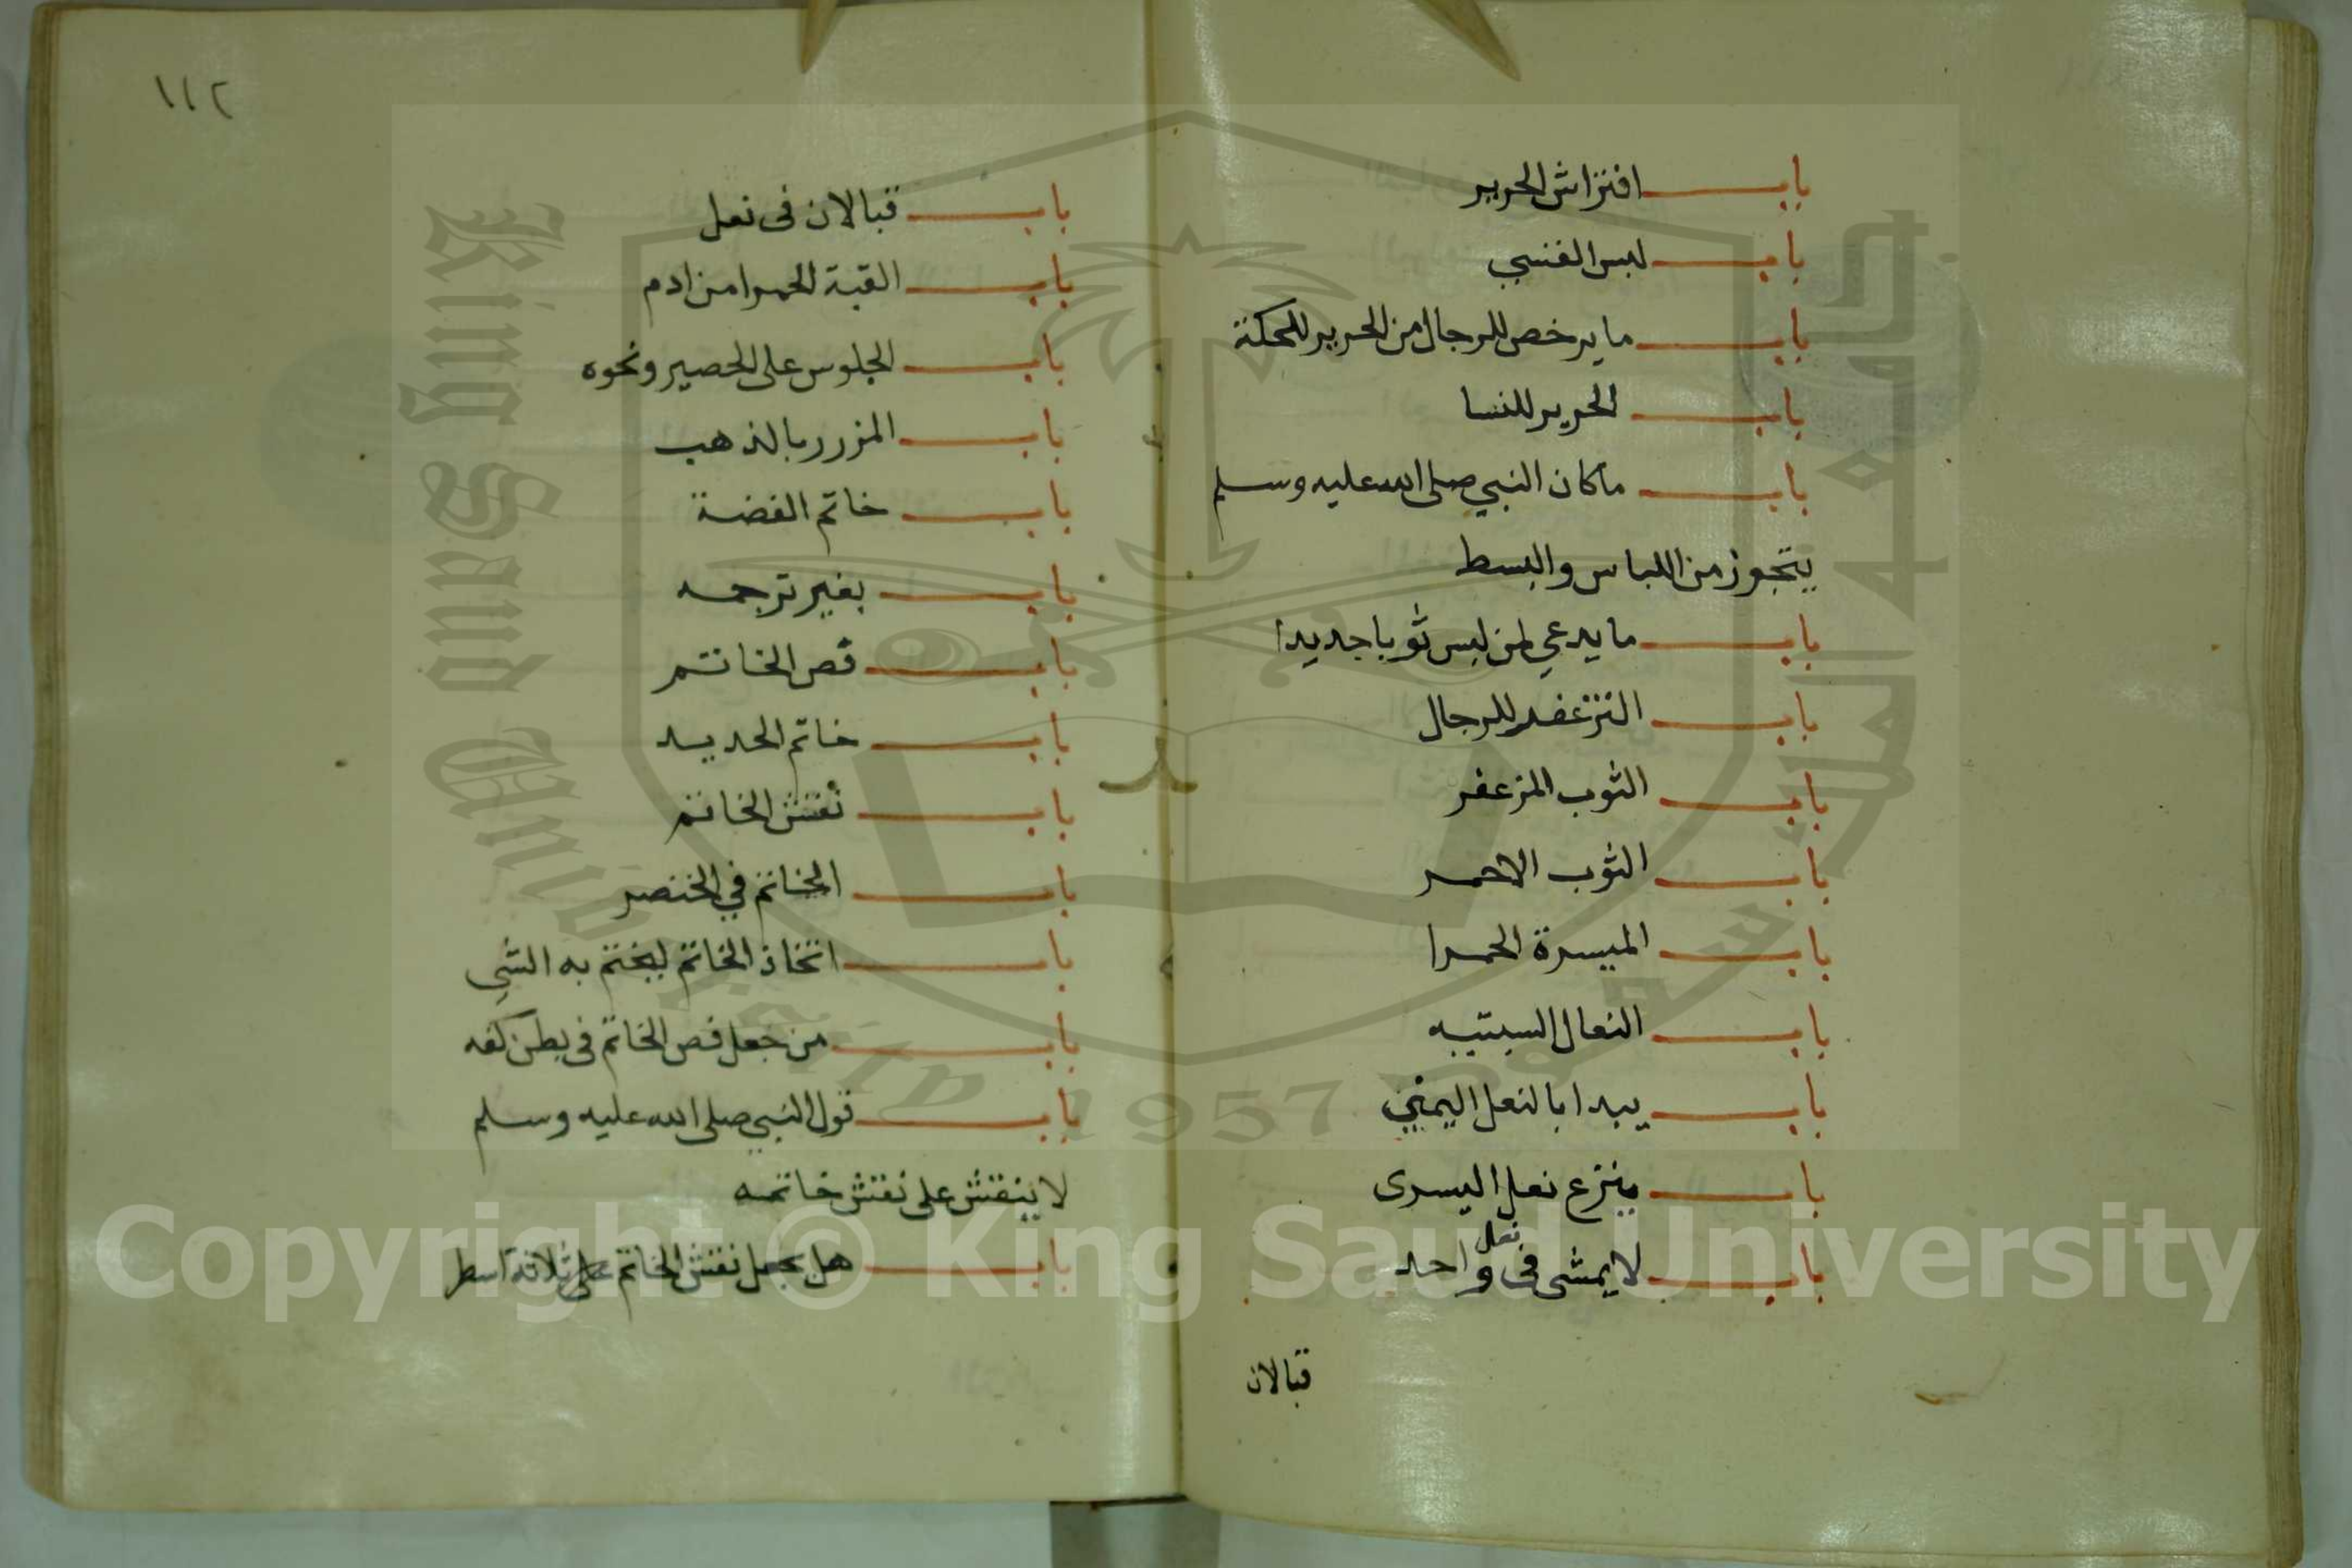 باب افتراش الحرير
باب لبس القسي
باب ما يرخص للرجال من الحرير للحكة
باب الحرير للنسا
باب ما كان النبي صلى الله عليه وسلم
يتجوز من اللباس والبسط
باب ما يدعي لمن لبس ثوبا جديدا
باب التزعفر للرجال
باب الثوب المزعفر
باب الثوب الاحمر
باب الميسرة الحمرا
باب النعال السبتيه
باب يبدا بالنعل اليمني
باب ينزع نعل اليسرى
باب لا يمشى فى نعل واحد
قبالان
١١٢
باب قبالان فى نعل
باب القبة الحمرا من ادم
باب الجلوس على الحصير ونحوه
باب المزرر بالذهب
باب خاتم الفضة
باب بغير ترجمه
باب فص الخاتم
باب خاتم الحديد
باب نقش الخاتم
باب الخاتم في الخنصر
باب اتخاذ الخاتم ليختم به الشي
باب من جعل فص الخاتم فى بطن كفه
باب قول النبي صلى الله عليه وسلم
لا ينقش على نقش خاتمه
باب هل يجعل نقش الخاتم على ثلاثة اسطر
King Saud University
1957
Copyright © King Saud University